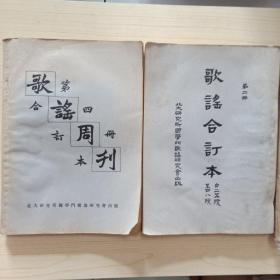 歌謠周刊
第四冊
合訂本
北大研究所國學門歌謠研究會出版
第二冊
歌謠合訂本
自二五號
至四八號
北大研究所國學門歌謠研究會出版